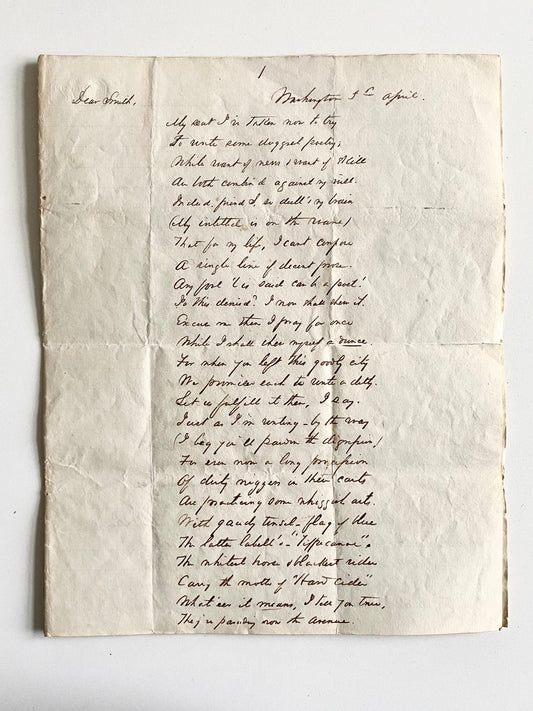 1
Dear Smith,
Washington 3d April.
My seat I've taken now to try
To write some doggrel poetry;
While want of news & want of skill
Are both combin'd against my will.
Indeed, friend S, so dull's my brain
(My intellect is on the wane)
That for my life, I cant compose
A single line of decent prose.
Any fool 'tis said can be a poet!
Is this denied? I now shall shew it.
Excuse me then I pray for once
While I shall shew myself a dunce
For when you left this goodly city
We promised each to write a ditty.
Let us fulfill it then, I say.
Just as I'm writing - by the way
(I beg you'll pardon the digression)
For even now a long procession
Of dirty niggers in their carts
Are practising some whiggish arts.
With gaudy tinsel - flag of blue
The latter labell'd - "Tippecanoe".
The whitest horse & blackest rider
Carry the motto of "Hard Cider"
What ere it means, I tell you true,
They're parading now the Avenue.